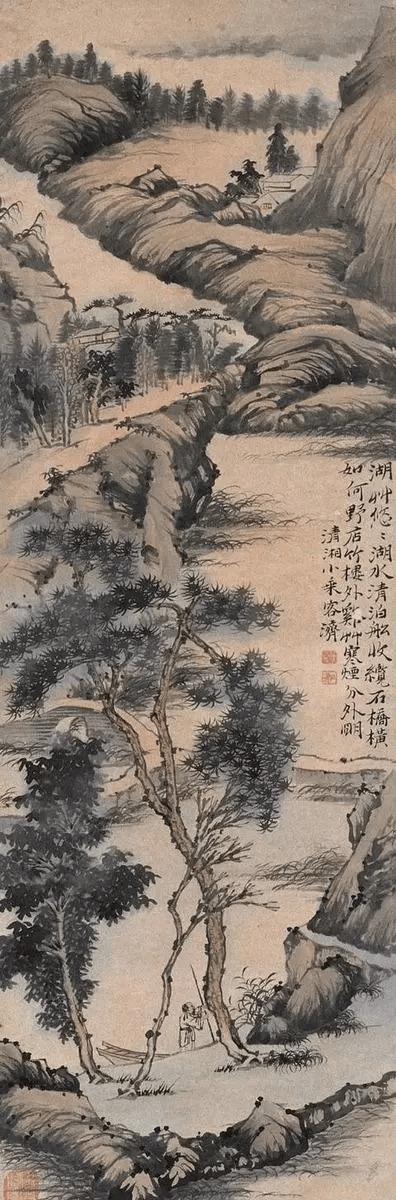 湖艸悠〻湖水清泊船收纜石橋橫
如何野店竹樓外艸寒煙分外明
清湘小乘客濟